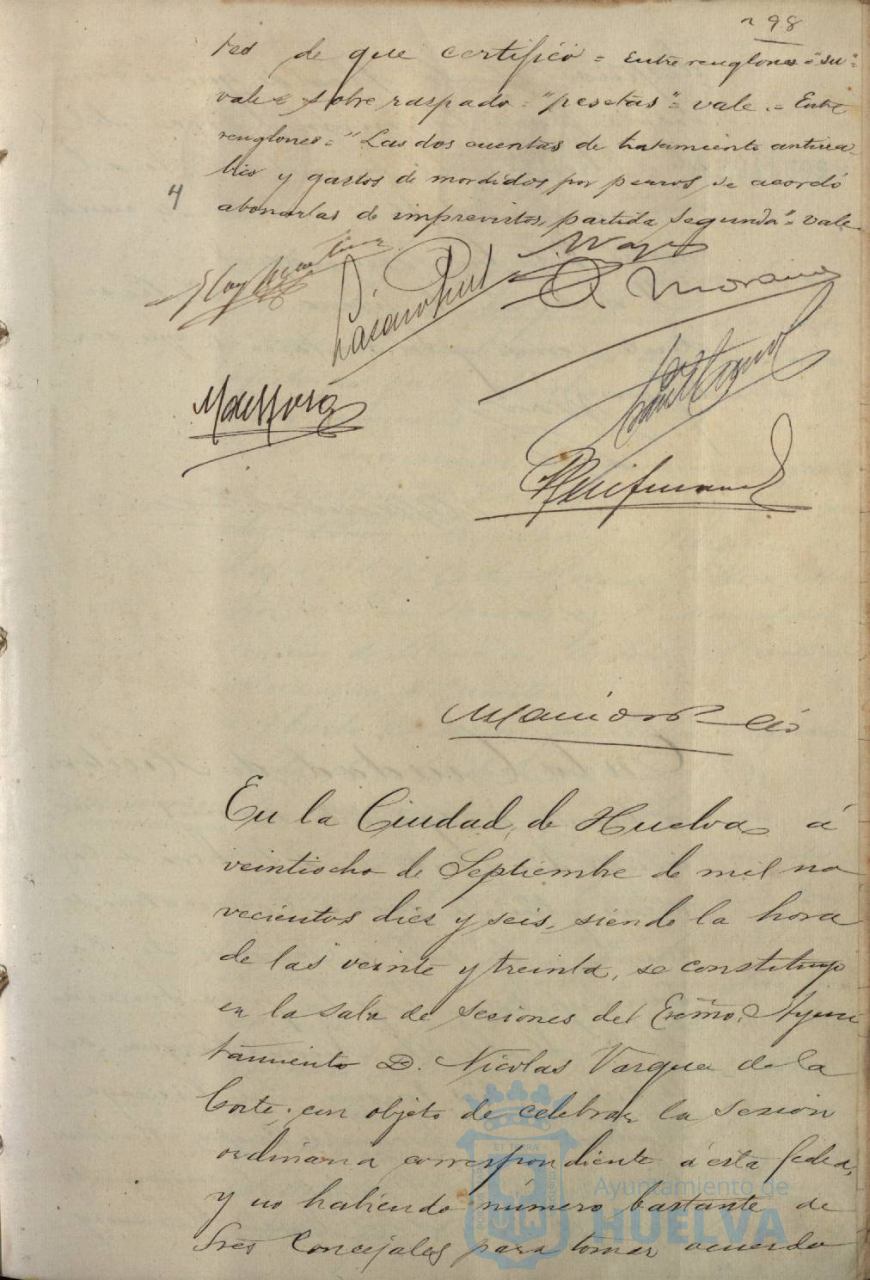 98
tes de que certifico = Entre renglones = "su" =
vale = sobre raspado = "pesetas" = vale. = Entre
renglones = "Las dos cuentas de tratamiento antirra-
bico y gastos de mordidos por perros, se acordó
4
abonarlas de imprevistos, partida segunda" = vale
A Moreno
En la Ciudad de Huelva á
veintiocho de Septiembre de mil no
vecientos diez y seis, siendo la hora
de las veinte y treinta, se constituyo
en la sala de sesiones del Excmo. Ayun
tamiento D. Nicolas Vazquez de la
Corte, con objeto de celebrar la sesion
ordinaria correspondiente á esta fecha,
y no habiendo número bastante de
Sres Concejales para tomar acuerdo
Ayuntamiento de
HUELVA